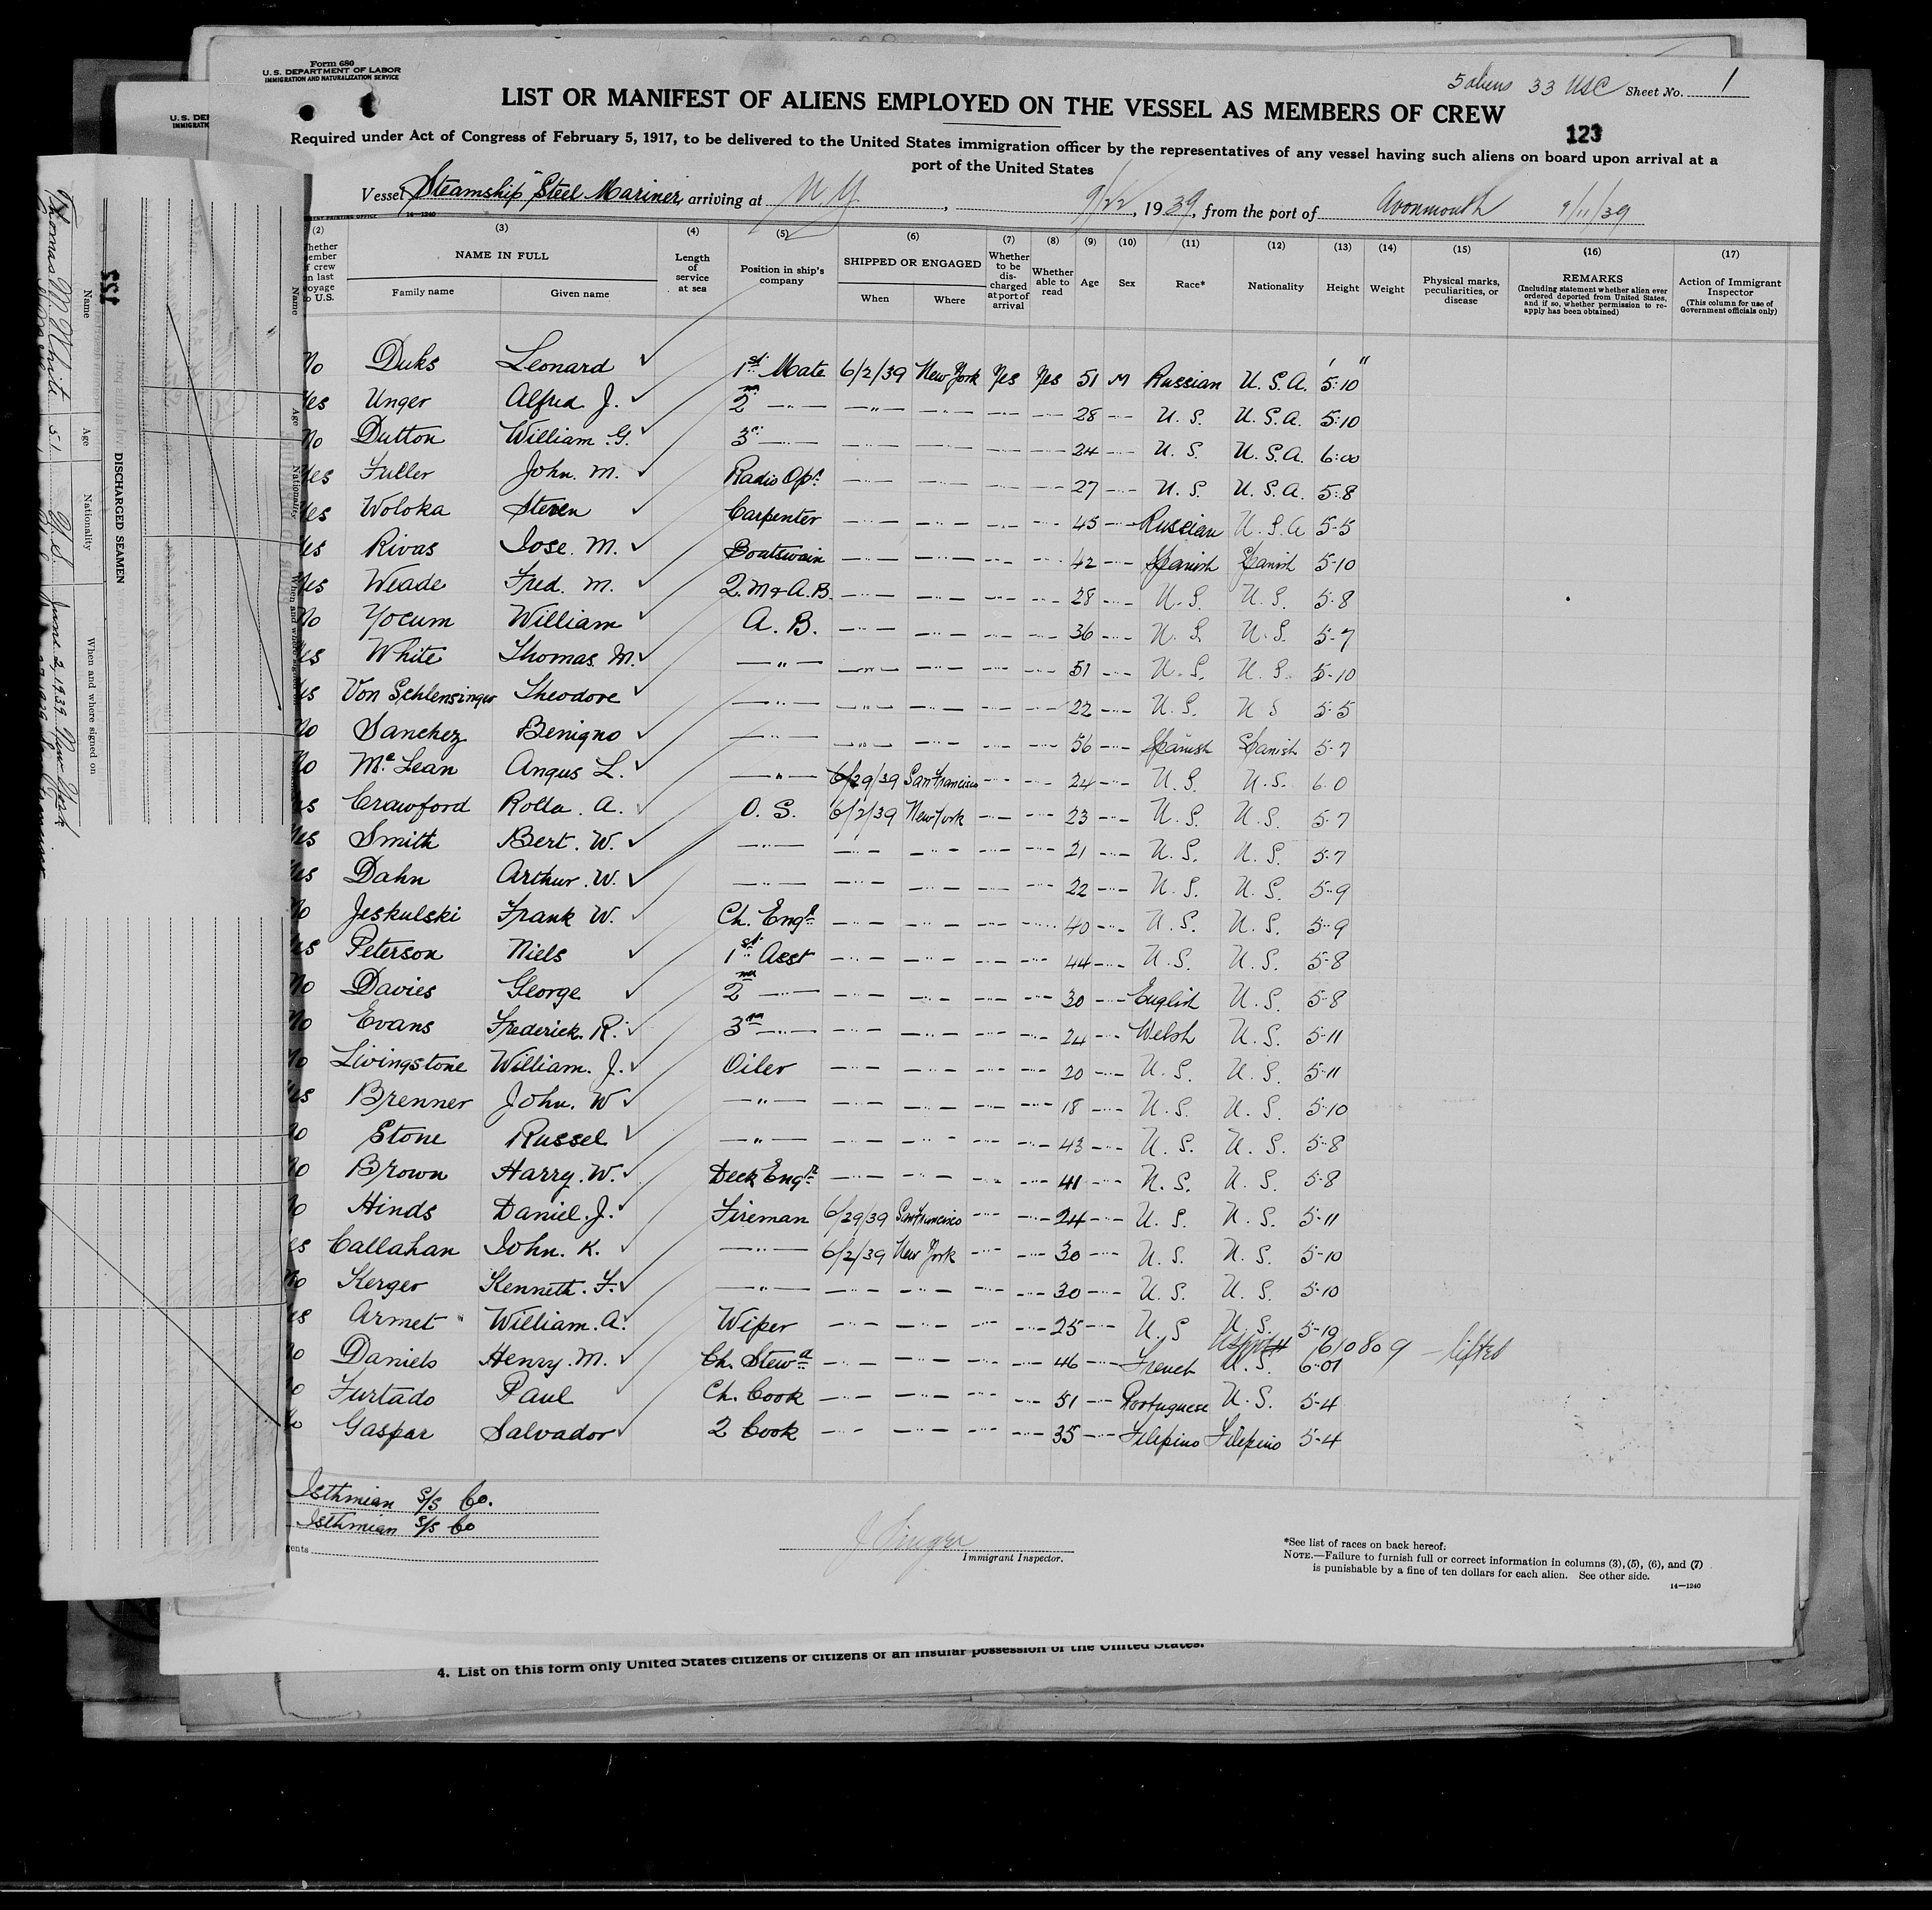 Form 680
U.S. DEPARTMENT OF LABOR
IMMIGRATION AND NATURALIZATION SERVICE
5 aliens 33 USC Sheet No. 1
LIST OR MANIFEST OF ALIENS EMPLOYED ON THE VESSEL AS MEMBERS OF CREW
123
Required under Act of Congress of February 5, 1917, to be delivered to the United States immigration officer by the representatives of any vessel having such aliens on board upon arrival at a
port of the United States
Vessel Steamship "Steel Mariner, arriving at N.Y. , 9/22, 1939, from the port of Avonmouth 9/11/39
14—1240
(2) (3) (4) (5) (6) (7) (8) (9) (10) (11) (12) (13) (14) (15) (16) (17)
NAME IN FULL
Family name Given name
Length of service at sea
Position in ship's company
SHIPPED OR ENGAGED
When Where
Whether to be discharged at port of arrival
Whether able to read
Age Sex Race* Nationality Height Weight
Physical marks, peculiarities, or disease
REMARKS
(Including statement whether alien ever ordered deported from United States, and if so, whether permission to reapply has been obtained)
Action of Immigrant Inspector
(This column for use of Government officials only)
No Duks Leonard ✓ 1st Mate 6/2/39 New York Yes Yes 51 M Russian U.S.A. 5'10"
Yes Unger Alfred J. ✓ 2nd —"— —"— —"— —"— —"— 28 —"— U.S. U.S.A. 5:10
No Dutton William G. ✓ 3rd —"— —"— —"— —"— —"— 24 —"— U.S. U.S.A. 6:00
Yes Fuller John. M. ✓ Radio Opr —"— —"— —"— —"— 27 —"— U.S. U.S.A. 5:8
Yes Woloka Steven ✓ Carpenter —"— —"— —"— —"— 45 —"— Russian U.S.A 5-5
Yes Rivas Jose. M. ✓ Boatswain —"— —"— —"— —"— 42 —"— Spanish Spanish 5-10
Yes Weade Fred. M. ✓ Q.M & A.B. —"— —"— —"— —"— 28 —"— U.S. U.S. 5-8
No Yocum William ✓ A.B. —"— —"— —"— —"— 36 —"— U.S. U.S. 5-7
Yes White Thomas. M. ✓ —"— —"— —"— —"— —"— 51 —"— U.S. U.S. 5-10
Yes Von Schlensinger Theodore ✓ —"— —"— —"— —"— —"— 22 —"— U.S. U S 5-5
No Sanchez Benigno ✓ —"— —"— —"— —"— —"— 56 —"— Spanish Spanish 5-7
No McLean Angus L. ✓ —"— 6/29/39 San Francisco —"— —"— 24 —"— U.S. U.S. 6.0
Yes Crawford Rolla. A. ✓ O.S. 6/2/39 New York —"— —"— 23 —"— U.S. U.S. 5-7
Yes Smith Bert. W. ✓ —"— —"— —"— —"— —"— 21 —"— U.S. U.S. 5-7
Yes Dahn Arthur. W. ✓ —"— —"— —"— —"— —"— 22 —"— U.S. U.S. 5-9
No Jeskulski Frank W. ✓ Ch. Engr —"— —"— —"— —"— 40 —"— U.S. U.S. 5-9
Yes Peterson Niels ✓ 1st Asst —"— —"— —"— —"— 44 —"— U.S. U.S. 5-8
No Davies George ✓ 2nd —"— —"— —"— —"— —"— 30 —"— English U.S. 5-8
No Evans Frederick. R. ✓ 3rd —"— —"— —"— —"— —"— 24 —"— Welsh U.S. 5-11
No Livingstone William. J. ✓ Oiler —"— —"— —"— —"— 20 —"— U.S. U.S. 5-11
Yes Brenner John. W ✓ —"— —"— —"— —"— —"— 18 —"— U.S. U.S. 5-10
No Stone Russel ✓ —"— —"— —"— —"— —"— 43 —"— U.S. U.S. 5-8
No Brown Harry. W. ✓ Deck Engr —"— —"— —"— —"— 41 —"— U.S. U.S. 5-8
No Hinds Daniel. J. ✓ Fireman 6/29/39 San Francisco —"— —"— 24 —"— U.S. U.S. 5-11
Yes Callahan John. K. ✓ —"— 6/2/39 New York —"— —"— 30 —"— U.S. U.S. 5-10
No Kerger Kenneth. F. ✓ —"— —"— —"— —"— —"— 30 —"— U.S. U.S. 5-10
Yes Armet William. A. ✓ Wiper —"— —"— —"— —"— 25 —"— U.S U.S. 5-10
610809 — lifted
No Daniels Henry. M. ✓ Ch. Stewd —"— —"— —"— —"— 46 —"— French U.S. 6-01
No Furtado Paul ✓ Ch. Cook —"— —"— —"— —"— 51 —"— Portuguese U.S. 5-4
No Gaspar Salvador ✓ 2 Cook —"— —"— —"— —"— 35 —"— Filipino Filipino 5-4
Isthmian S/S Co.
Isthmian S/S Co
J Singer
Immigrant Inspector.
*See list of races on back hereof.
NOTE.—Failure to furnish full or correct information in columns (3), (5), (6), and (7)
is punishable by a fine of ten dollars for each alien. See other side.
14—1240
4. List on this form only United States citizens or citizens of an insular possession of the United States.
DISCHARGED SEAMEN
Name Age Nationality When and where signed on
Thomas M White 51 U.S. June 2, 1939 New York